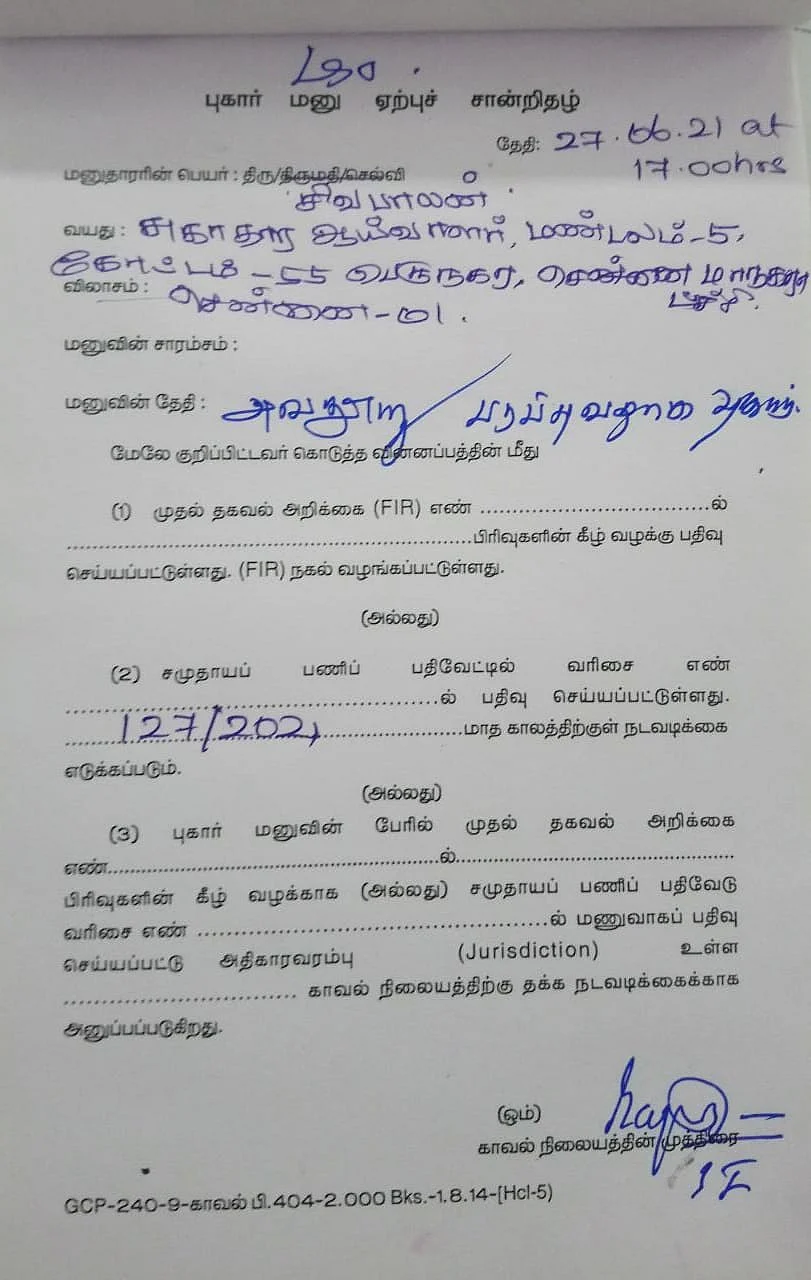 புகார் மனு ஏற்புச் சான்றிதழ்
தேதி: 27.06.21 at
17.00hrs
மனுதாரரின் பெயர் : திரு/திருமதி/செல்வி
சிவபாலன்
வயது : சுகாதார ஆய்வாளர், மண்டலம்-5,
கோட்டம்-55 பெருநகர, சென்னை மாநகரா
விலாசம் : சென்னை-01.
மனுவின் சாரம்சம் :
மனுவின் தேதி : அவதூறு
மேலே குறிப்பிட்டவர் கொடுத்த விண்ணப்பத்தின் மீது
(1) முதல் தகவல் அறிக்கை (FIR) எண் ....................................ல்
................................................................பிரிவுகளின் கீழ் வழக்கு பதிவு
செய்யப்பட்டுள்ளது. (FIR) நகல் வழங்கப்பட்டுள்ளது.
(அல்லது)
(2) சமுதாயப் பணிப் பதிவேட்டில் வரிசை எண்
..........................................................ல் பதிவு செய்யப்பட்டுள்ளது.
127/2021 ......................மாத காலத்திற்குள் நடவடிக்கை
எடுக்கப்படும்.
(அல்லது)
(3) புகார் மனுவின் பேரில் முதல் தகவல் அறிக்கை
எண்......................................................ல்..............................................
பிரிவுகளின் கீழ் வழக்காக (அல்லது) சமுதாயப் பணிப் பதிவேடு
வரிசை எண் ......................................................ல் மனுவாகப் பதிவு
செய்யப்பட்டு அதிகாரவரம்பு (Jurisdiction) உள்ள
.................................... காவல் நிலையத்திற்கு தக்க நடவடிக்கைக்காக
அனுப்பப்படுகிறது.
(ஒம்)
காவல் நிலையத்தின் முத்திரை
GCP-240-9-காவல் பி.404-2.000 Bks.-1.8.14-[Hcl-5)